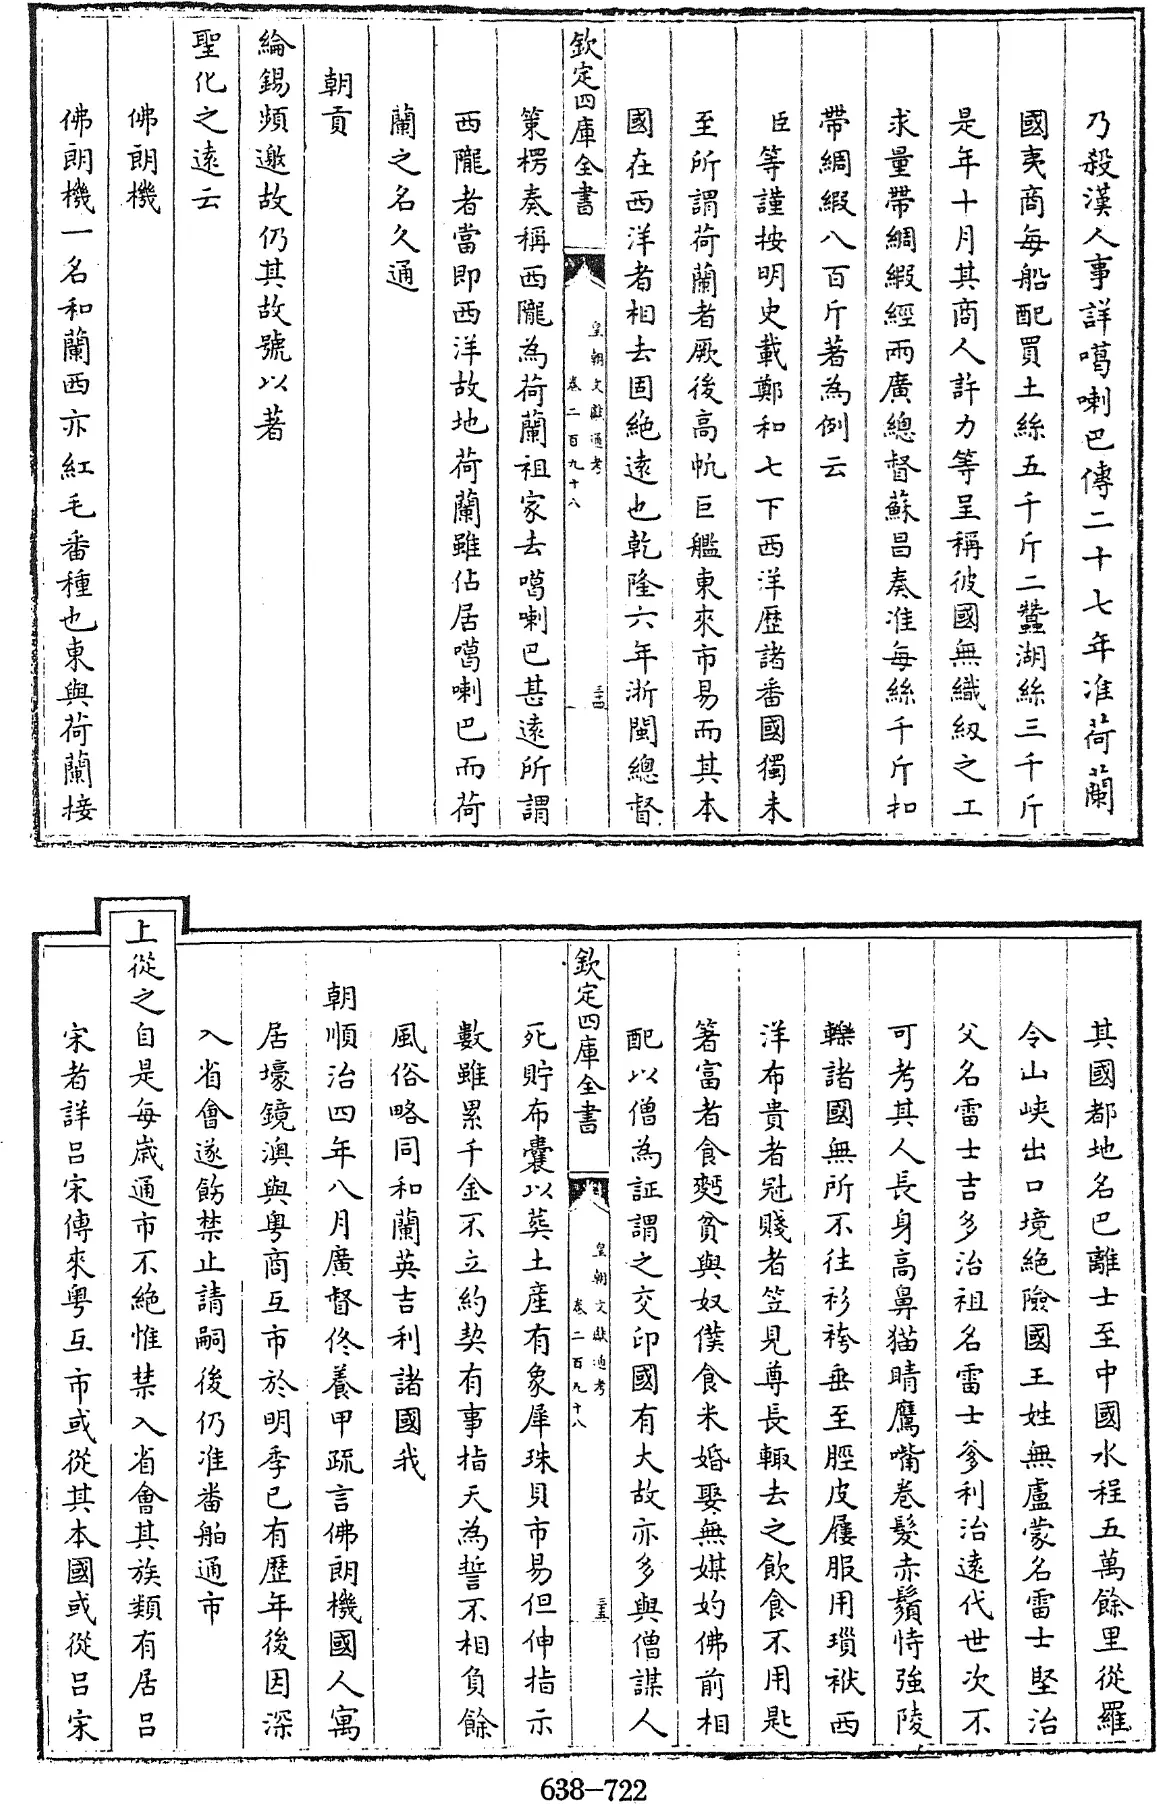 乃殺漢人事詳噶喇巴傳二十七年准荷蘭
國夷商每船配買土絲五千斤二蠶湖絲三千斤
是年十月其商人許力等呈稱彼國無織紉之工
求量帶綢緞經兩廣總督蘇昌奏准每絲千斤扣
帶綢緞八百斤著為例云
臣等謹按明史載鄭和七下西洋歷諸番國獨未
至所謂荷蘭者厥後高帆巨艦東來市易而其本
國在西洋者相去固絶遠也乾隆六年浙閩總督
欽定四庫全書
皇朝文獻通考
卷二百九十八
三十四
策楞奏稱西隴為荷蘭祖家去噶喇巴甚遠所謂
西隴者當即西洋故地荷蘭雖佔居噶喇巴而荷
蘭之名久通
朝貢
綸錫頻邀故仍其故號以著
聖化之遠云
佛朗機
佛朗機一名和蘭西亦紅毛番種也東與荷蘭接
其國都地名巴離士至中國水程五萬餘里從羅
令山峽出口境絶險國王姓無盧蒙名雷士堅治
父名雷士吉多治祖名雷士爹利治遠代世次不
可考其人長身高鼻猫睛鷹嘴卷髮赤鬚恃強陵
轢諸國無所不往衫袴垂至脛皮屨服用瑣袱西
洋布貴者冠賤者笠見尊長輙去之飲食不用匙
箸富者食麪貧與奴僕食米婚娶無媒妁佛前相
配以僧為証謂之交印國有大故亦多與僧謀人
欽定四庫全書
皇朝文獻通考
卷二百九十八
三十五
死貯布囊以葬土産有象犀珠貝市易但伸指示
數雖累千金不立約契有事指天為誓不相負餘
風俗略同和蘭英吉利諸國我
朝順治四年八月廣督佟養甲疏言佛朗機國人寓
居壕鏡澳與粵商互市於明季已有歷年後因深
入省會遂飭禁止請嗣後仍准番舶通市
上從之自是每歲通市不絶惟禁入省會其族類有居呂
宋者詳呂宋傳來粵互市或從其本國或從呂宋
638-722